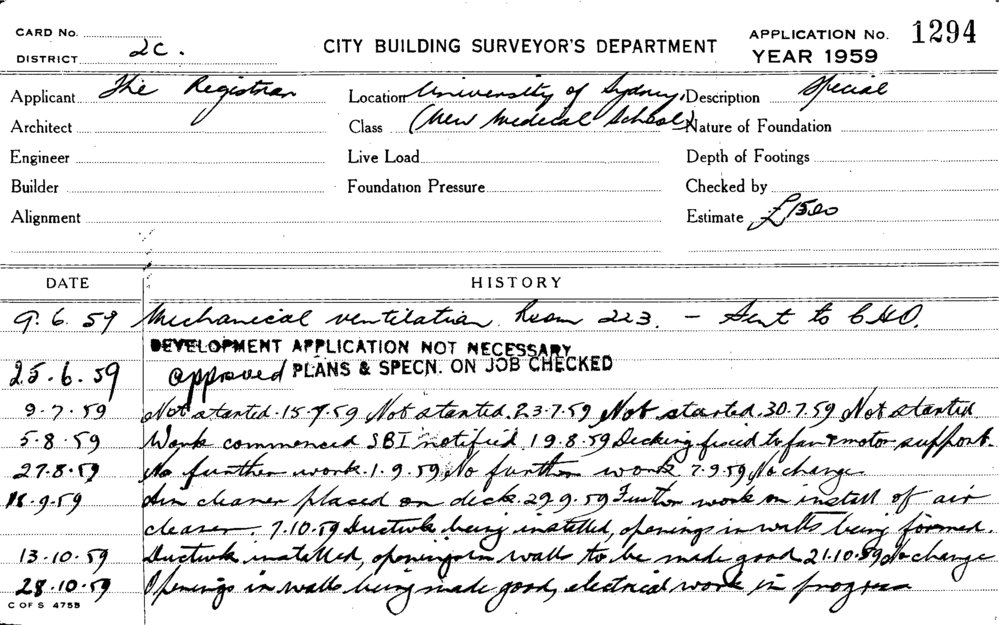 CARD No.
DISTRICT 2C.
CITY BUILDING SURVEYOR'S DEPARTMENT
APPLICATION No. 1294
YEAR 1959
Applicant The Registrar Location University of Sydney, Description Special
Architect Class (New Medical School) Nature of Foundation
Engineer Live Load Depth of Footings
Builder Foundation Pressure Checked by
Alignment Estimate £1500
DATE HISTORY
9.6.59 Mechanical ventilation Room 223. - Sent to C.H.O.
DEVELOPMENT APPLICATION NOT NECESSARY
25.6.59 Approved PLANS & SPECN. ON JOB CHECKED
9.7.59 Not started. 15.7.59 Not started. 23.7.59 Not started. 30.7.59 Not started
5.8.59 Work commenced SBI notified 19.8.59 Decking fixed to fan & motor support.
27.8.59 No further work. 1.9.59 No further work 7.9.59 No change
18.9.59 Air cleaner placed on deck. 29.9.59 Further work on install of air
cleaner. 7.10.59 Ductwk being installed, openings in walls being formed.
13.10.59 Ductwk installed, openings in walls to be made good 21.10.59 No change
28.10.59 Openings in walls being made good, electrical work in progress
C OF S 4755